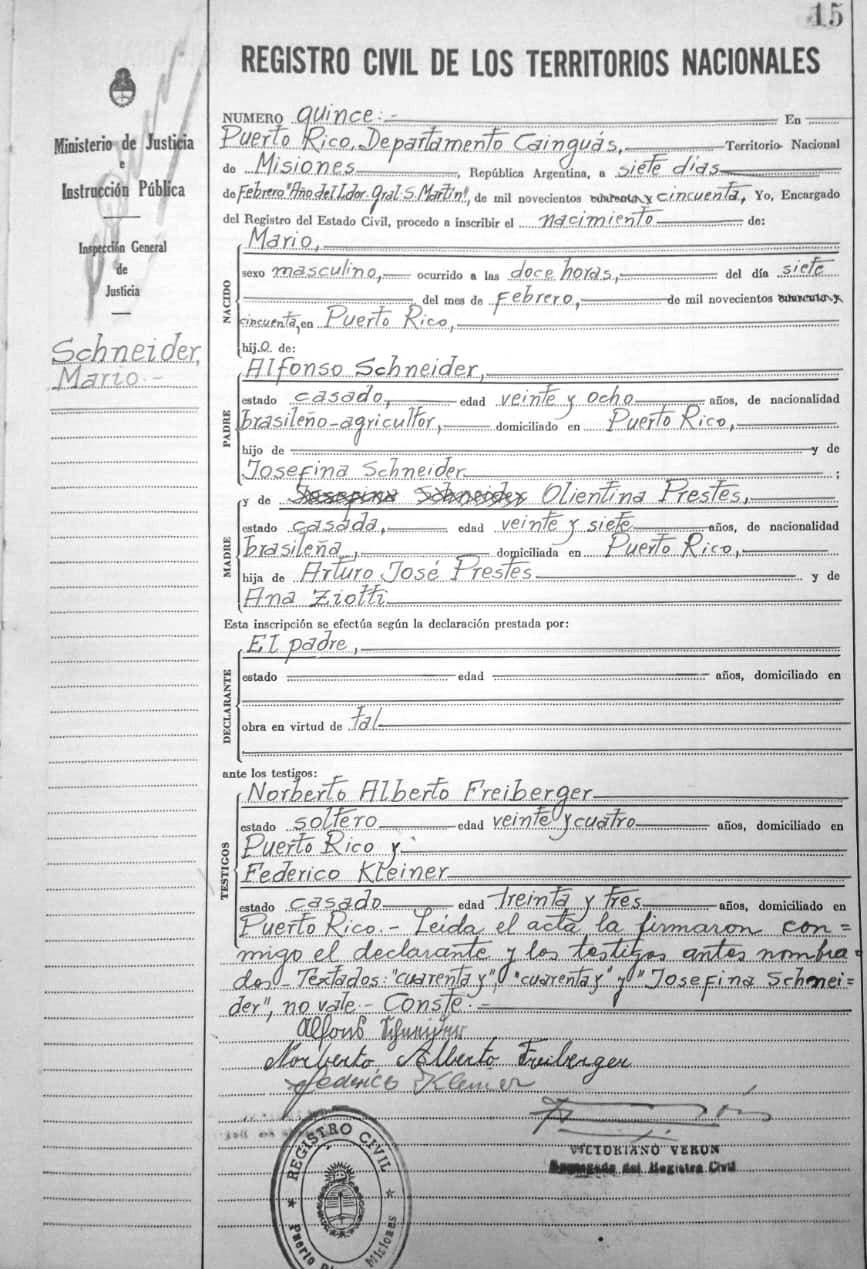 15
REGISTRO CIVIL DE LOS TERRITORIOS NACIONALES
Ministerio de Justicia
e
Instrucción Pública
Inspección General
de
Justicia
Schneider,
Mario.-
NUMERO quince:- En
Puerto Rico, Departamento Cainguás, Territorio Nacional
de Misiones, República Argentina, a siete días
de Febrero "Año del Ldor. Gral. S. Martin", de mil novecientos cuarenta y cincuenta, Yo, Encargado
del Registro del Estado Civil, procedo a inscribir el nacimiento de:
NACIDO
Mario,
sexo masculino, ocurrido a las doce horas, del día siete
del mes de Febrero, de mil novecientos cuarenta y
cincuenta, en Puerto Rico,
hijo de:
PADRE
Alfonso Schneider,
estado casado, edad veinte y ocho años, de nacionalidad
brasileño-agricultor, domiciliado en Puerto Rico,
hijo de y de
Josefina Schneider ;
MADRE
y de Josefina Schneider Olientina Prestes,
estado casada, edad veinte y siete años, de nacionalidad
brasileña, domiciliada en Puerto Rico,
hija de Arturo José Prestes y de
Ana Ziotti
Esta inscripción se efectúa según la declaración prestada por:
DECLARANTE
El padre,
estado edad años, domiciliado en
obra en virtud de tal
ante los testigos:
TESTIGOS
Norberto Alberto Freiberger
estado soltero edad veinte y cuatro años, domiciliado en
Puerto Rico y
Federico Kleiner
estado casado edad treinta y tres años, domiciliado en
Puerto Rico.- Leida el acta la firmaron con=
migo el declarante y los testigos antes nombra=
dos- Textados: "cuarenta y", "cuarenta y" y "Josefina Schnei=
der", no vale.- Conste.-
Alfons Schneider
Norberto Alberto Freiberger
Federico Kleiner
VICTORIANO VERON
Encargado del Registro Civil
REGISTRO CIVIL
Puerto Misiones